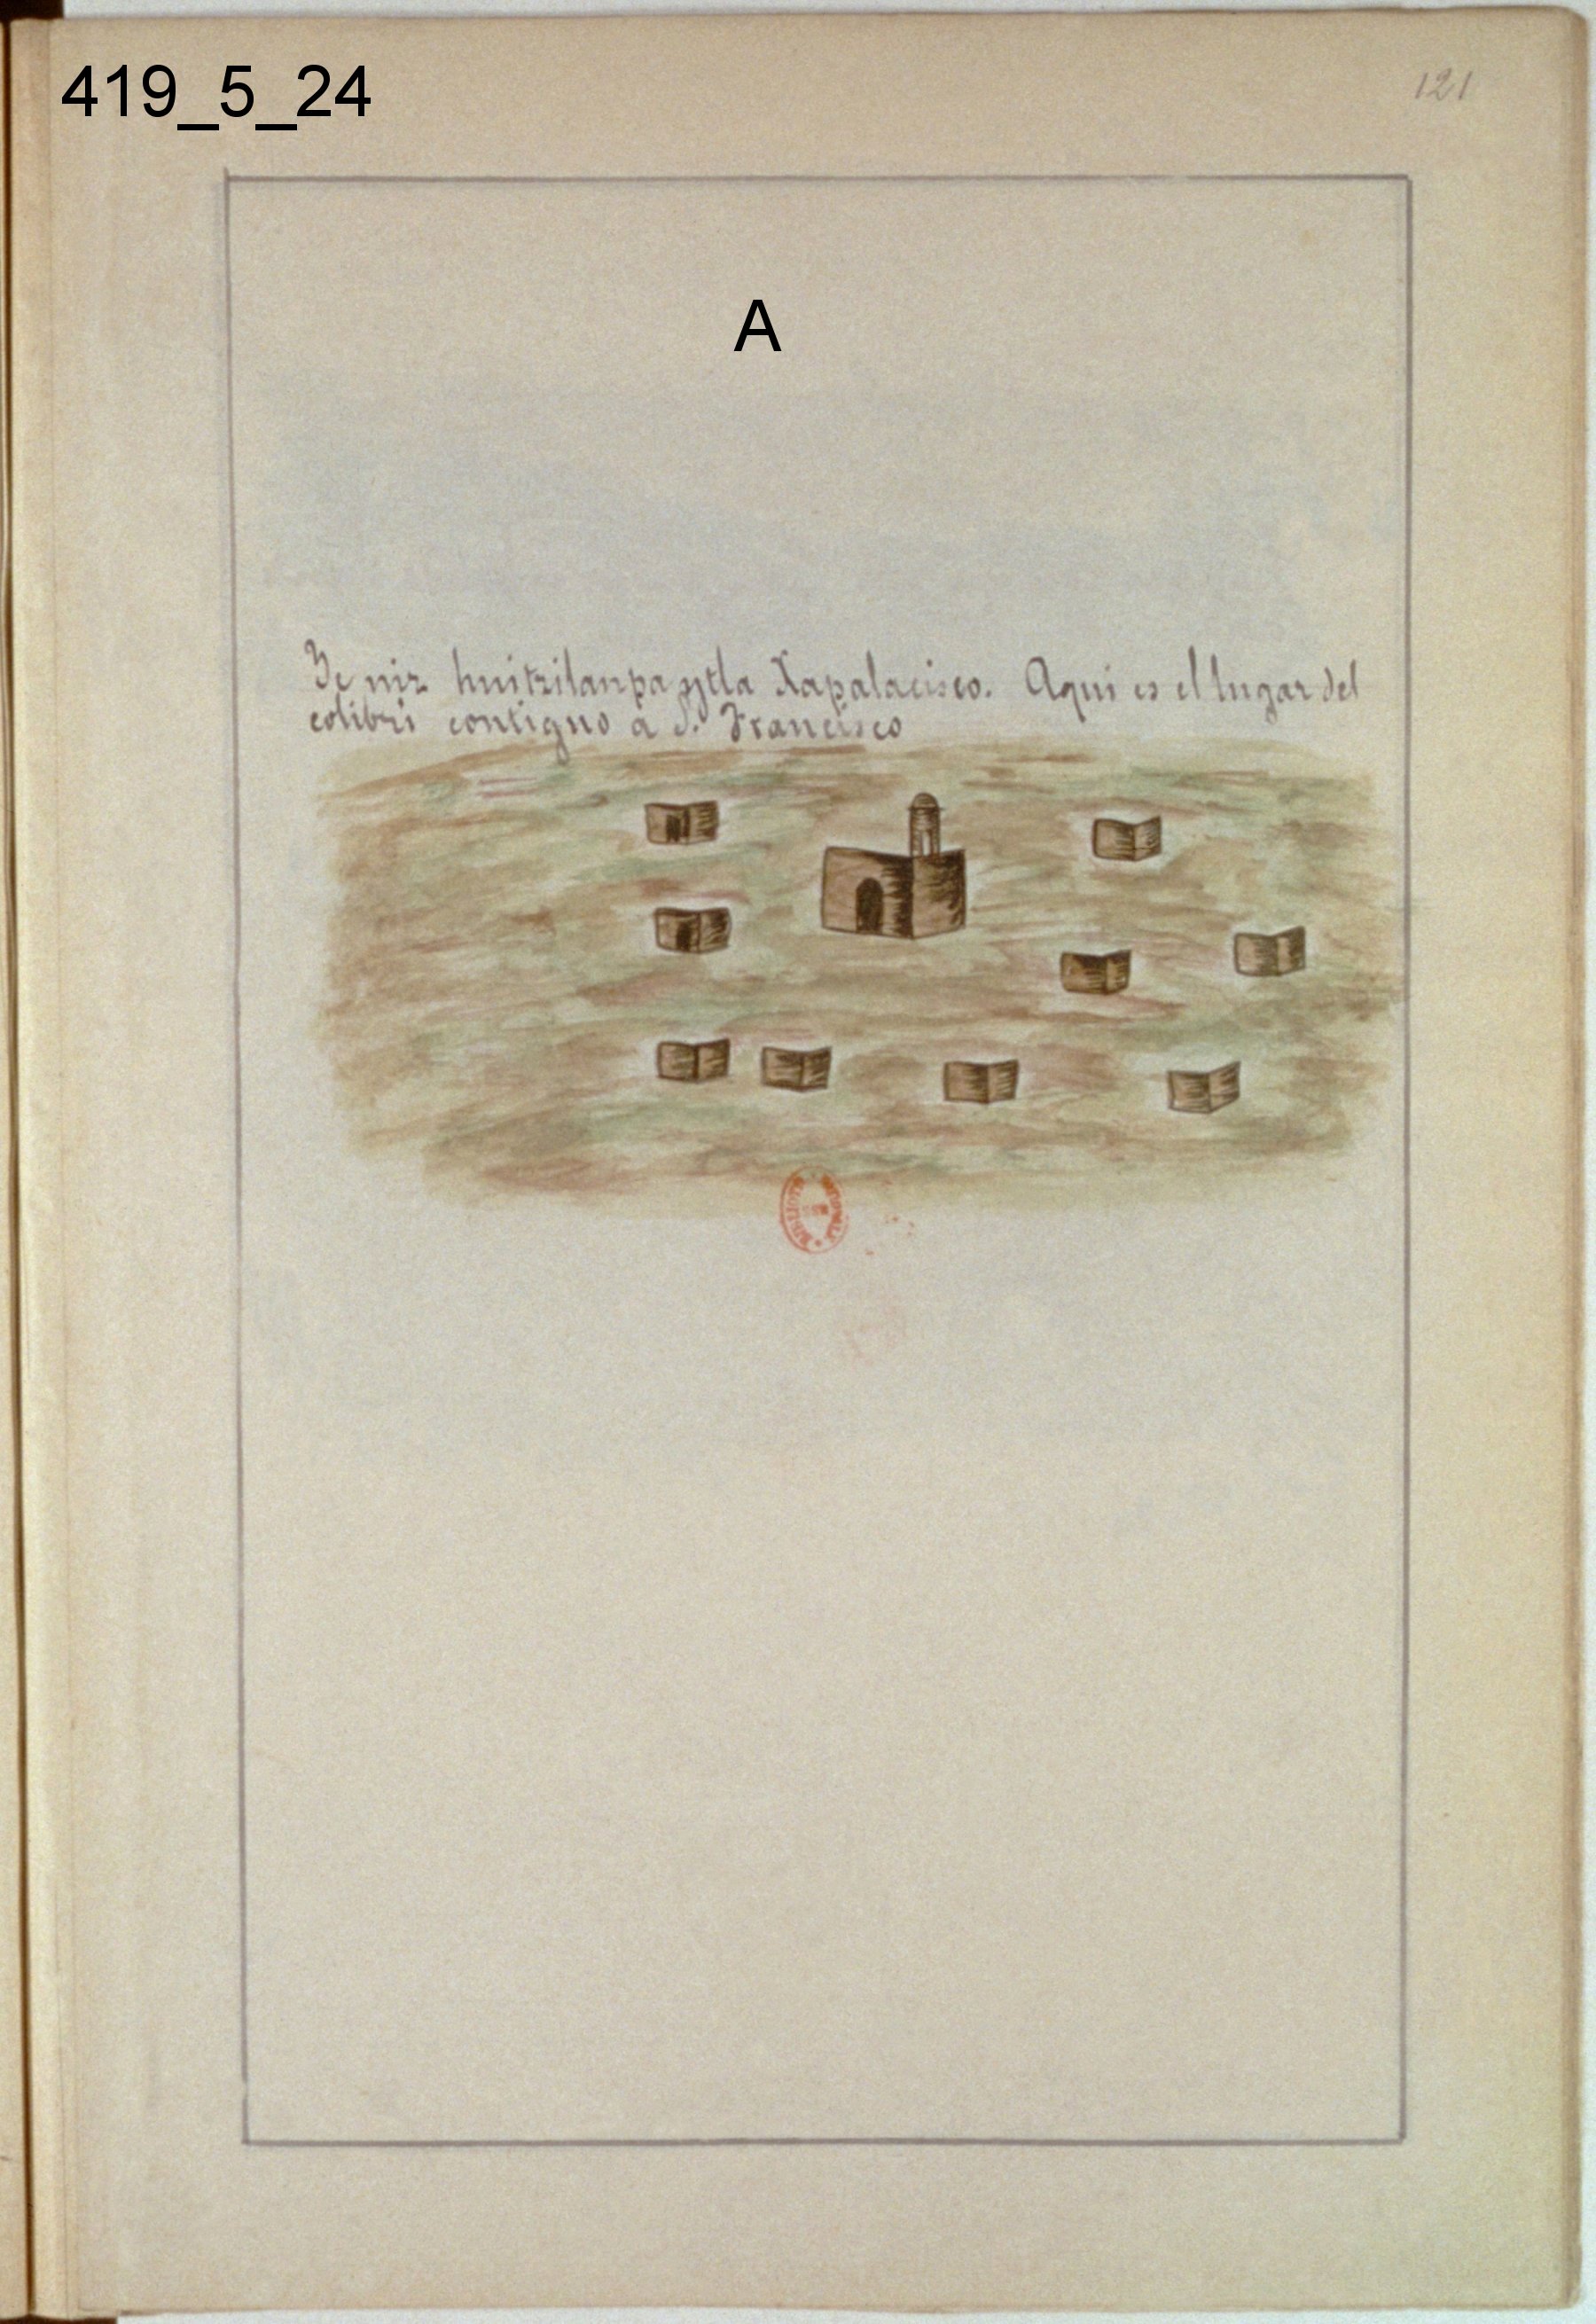 419_5_24
121
A
Ye niz huitzilanpa yytla Xapalacisco. Aqui es el lugar del
colibri contiguo a S. Francisco